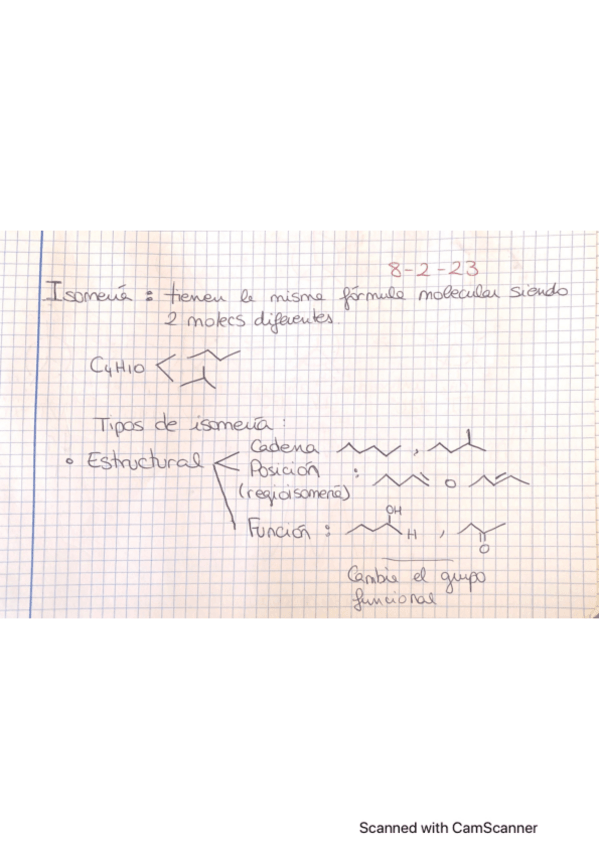 8-2-23
Isomería : tienen la misma fórmula molecular siendo
2 molecs diferentes.
C4H10
Tipos de isomería :
• Estructural
Cadena ,
Posición : o
(regioisomería)
Función : OH H , O
Cambia el grupo
funcional
Scanned with CamScanner